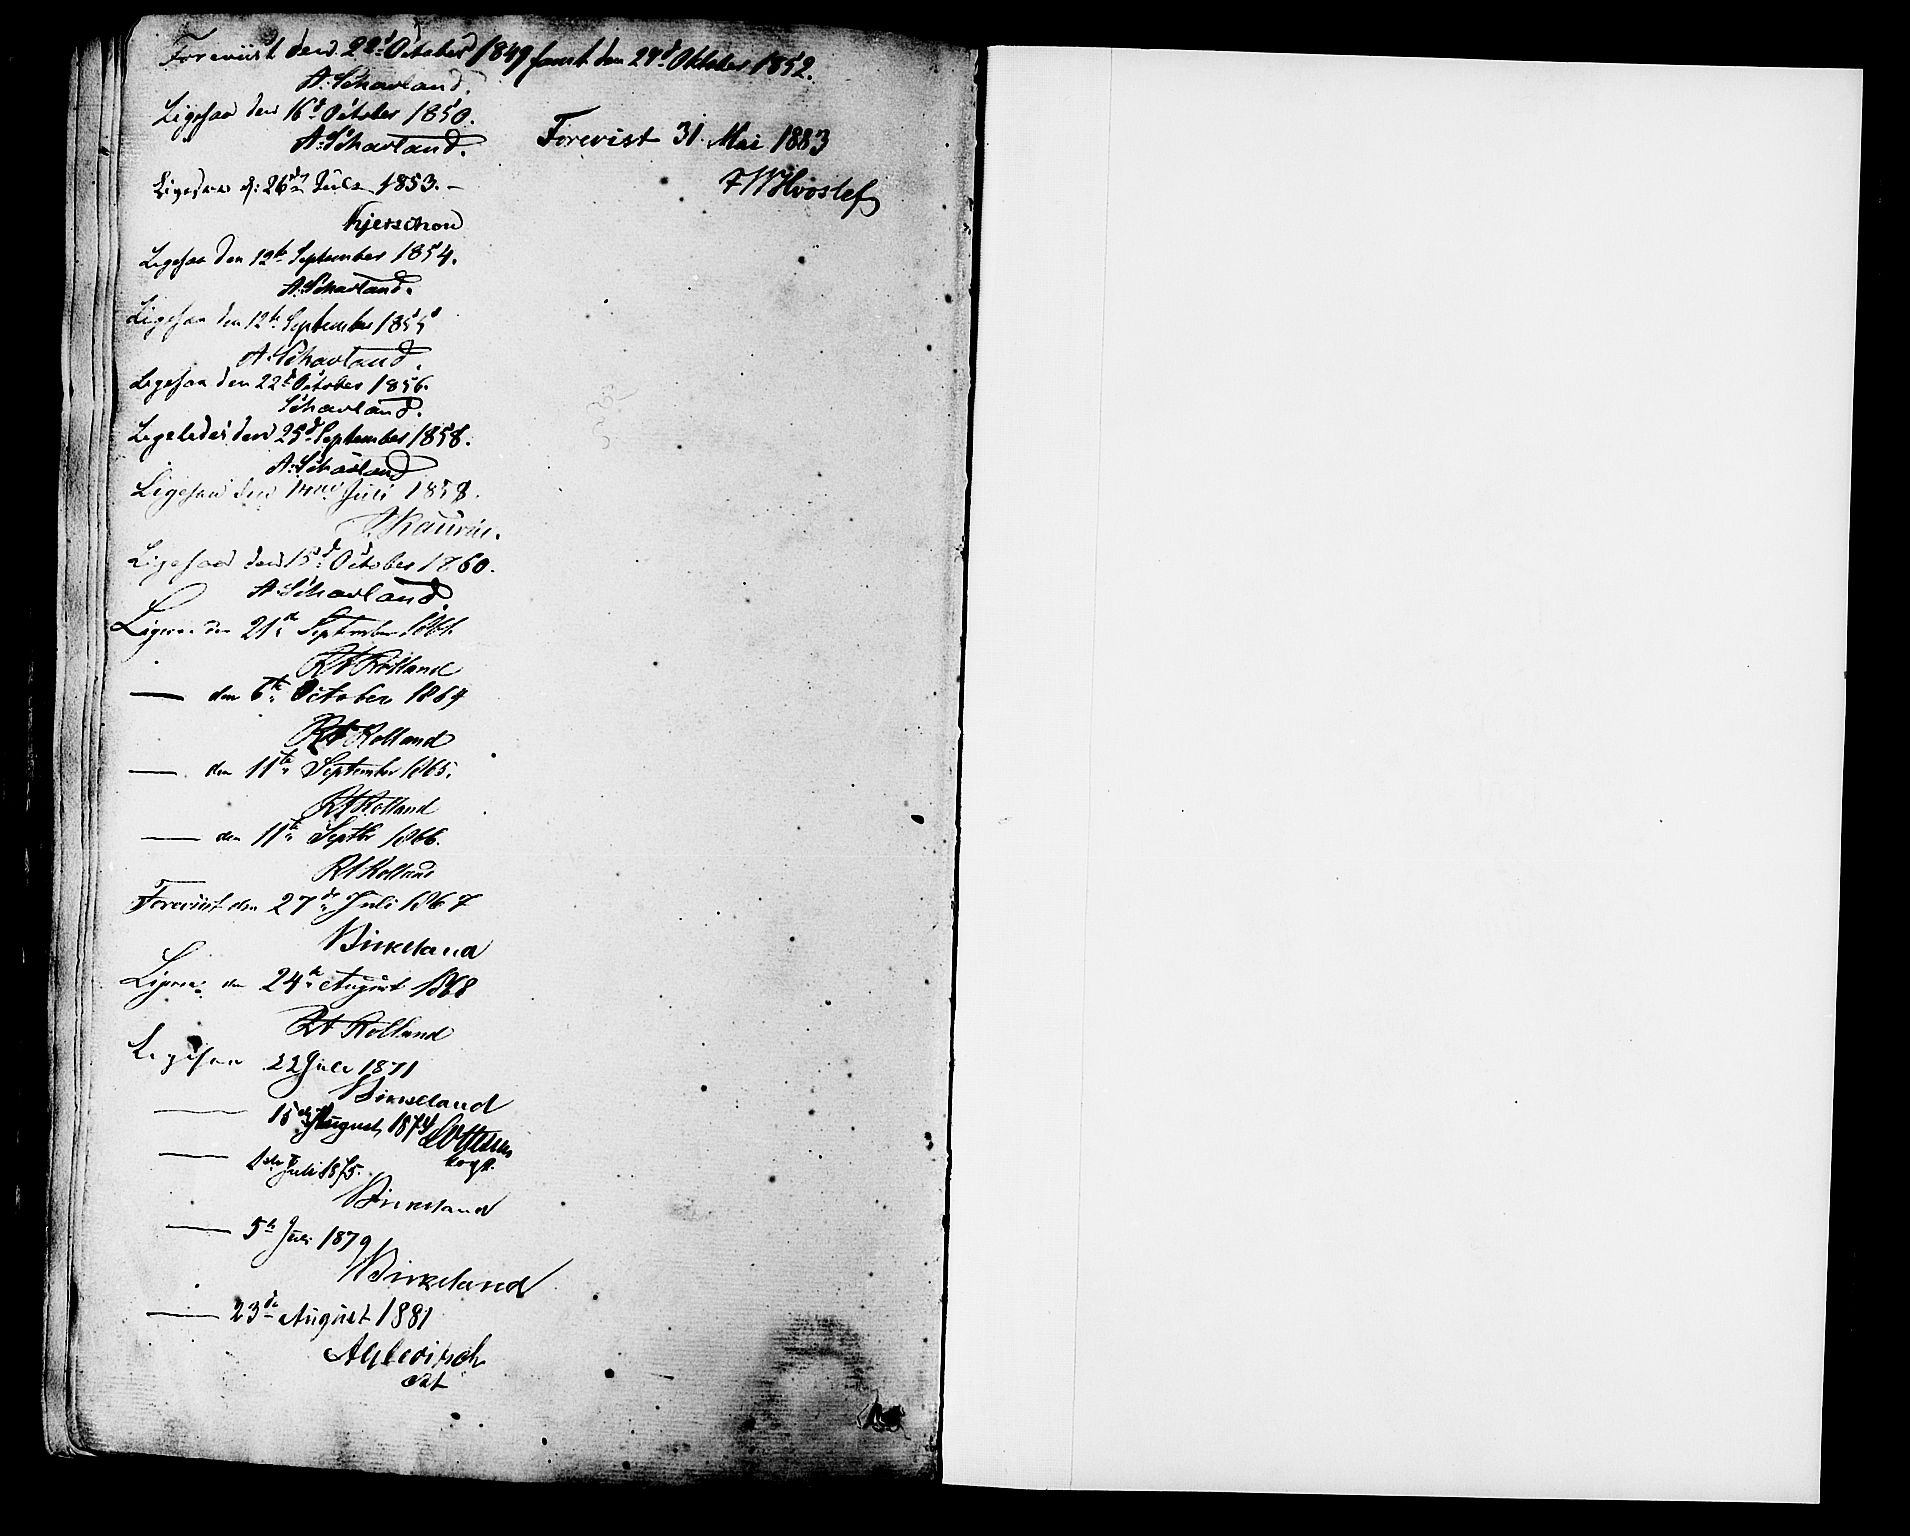 Foreviist den 22d October 1849 samt den 29d Oktober 1852.
A. Scharland.
Ligesaa den 16d October 1850.
A. Scharland.
Ligesaa d: 26de Juli 1853. –
Kjerschow
Ligesaa den 12te September 1854.
A. Scharland.
Ligesaa den 12te September 1855
A. Scharland.
Ligesaa den 22d October 1856.
Scharland.
Ligeledes den 25d September 1858.
A. Scharland
Ligesaa den Juli 1858.
Kaurin.
Ligesaa den 15d October 1860.
A. Scharland
Ligesaa den 21de September 1861.
Rolland
— den 6te October 1864
Rolland
— den 11te September 1865.
Rolland
— den 11te Septbr 1866.
Rolland
Foreviist den 27de Juli 1867
Birkeland
Ligesaa den 24de August 1868
Rolland
Ligesaa 22 Juli 1871
Birkeland
— 15de August 1874
— 1ste Juli 1875.
Birkeland
— 5te Juli 1879
Birkeland
— 23de August 1881
cst
Forevist 31. Mai 1883
F W Hvoslef